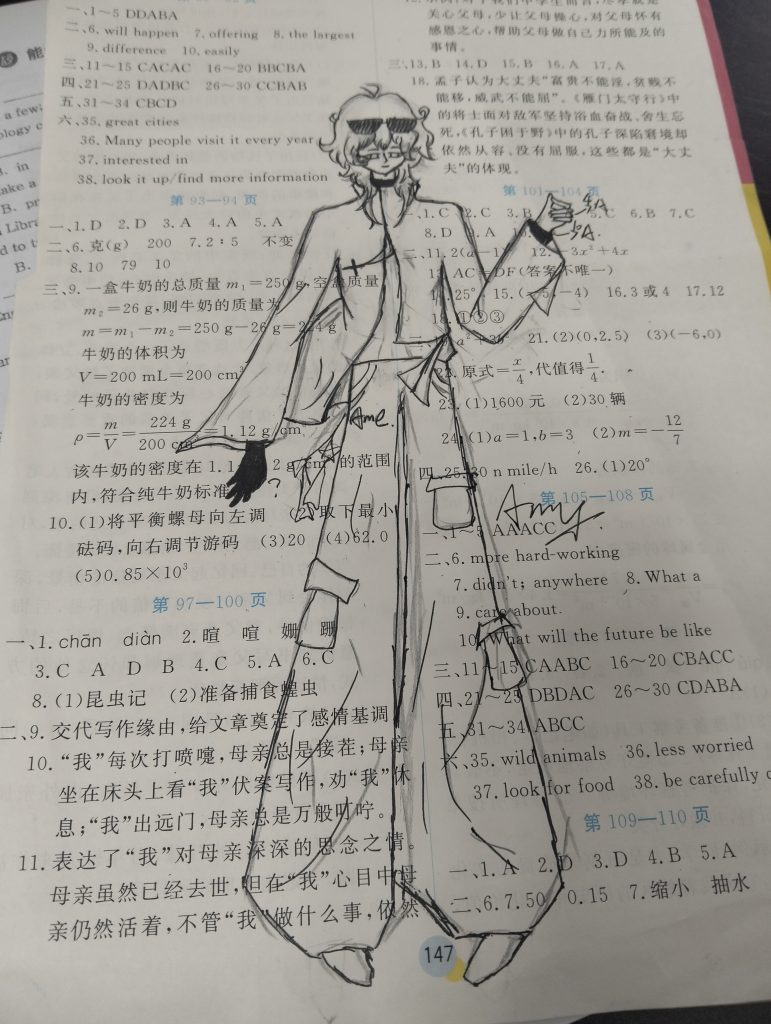 一、1~5 DDABA
二、6. will happen 7. offering 8. the largest
9. difference 10. easily
三、11~15 CACAC 16~20 BBCBA
四、21~25 DADBC 26~30 CCBAB
五、31~34 CBCD
六、35. great cities
36. Many people visit it every year
37. interested in
38. look it up/find more information
第 93—94 页
一、1. D 2. D 3. A 4. A 5. A
二、6. 克(g) 200 7. 2∶5 不变
8. 10 79 10
三、9. 一盒牛奶的总质量 m₁=250 g,空盒质量
m₂=26 g,则牛奶的质量为
m=m₁-m₂=250 g-26 g=224 g
牛奶的体积为
V=200 mL=200 cm³
牛奶的密度为
ρ=m/V=224 g/200 cm³=1.12 g/cm
该牛奶的密度在 1.1 2 g/cm³ 的范围
内,符合纯牛奶标准
?
Ame.
10. (1)将平衡螺母向左调 (2)取下最小
砝码,向右调节游码 (3)20 (4)62.0
(5)0.85×10³
第 97—100 页
一、1. chān diàn 2. 暄 喧 姗 跚
3. C A D B 4. C 5. A 6. C
8. (1)昆虫记 (2)准备捕食蝗虫
二、9. 交代写作缘由,给文章奠定了感情基调
10. “我”每次打喷嚏,母亲总是接茬;母亲
坐在床头上看“我”伏案写作,劝“我”休
息;“我”出远门,母亲总是万般叮咛。
11. 表达了“我”对母亲深深的思念之情。
母亲虽然已经去世,但在“我”心目中母
亲仍然活着,不管“我”做什么事,依然
关心父母,少让父母操心,对父母怀有
感恩之心,帮助父母做自己力所能及的
事情。
三、13. B 14. D 15. B 16. A 17. A
18. 孟子认为大丈夫“富贵不能淫,贫贱不
能移,威武不能屈”。《雁门太守行》中
的将士面对敌军坚持浴血奋战、舍生忘
死,《孔子困于野》中的孔子深陷窘境却
依然从容、没有屈服,这些都是“大丈
夫”的体现。
第 101—104 页
一、1. C 2. C 3. B 5. C 6. B 7. C
8. D 9. A
二、11. 2(a-1) 12. -3x²+4x
13. AC=DF(答案不唯一)
14. 25° 15. (-5,-4) 16. 3 或 4 17. 12
18. ①②③
21. (2)(0,2.5) (3)(-6,0)
22. 原式=x/4,代值得1/4.
23. (1)1600 元 (2)30 辆
24. (1)a=1,b=3 (2)m=-12/7
四、25. 30 n mile/h 26. (1)20°
第 105—108 页
Amy
一、1~5 AAACC
二、6. more hard-working
7. didn't; anywhere 8. What a
9. care about.
10. What will the future be like
三、11~15 CAABC 16~20 CBACC
四、21~25 DBDAC 26~30 CDABA
五、31~34 ABCC
六、35. wild animals 36. less worried
37. look for food 38. be carefully
第 109—110 页
一、1. A 2. D 3. D 4. B 5. A
二、6. 7.50 0.15 7. 缩小 抽水
147